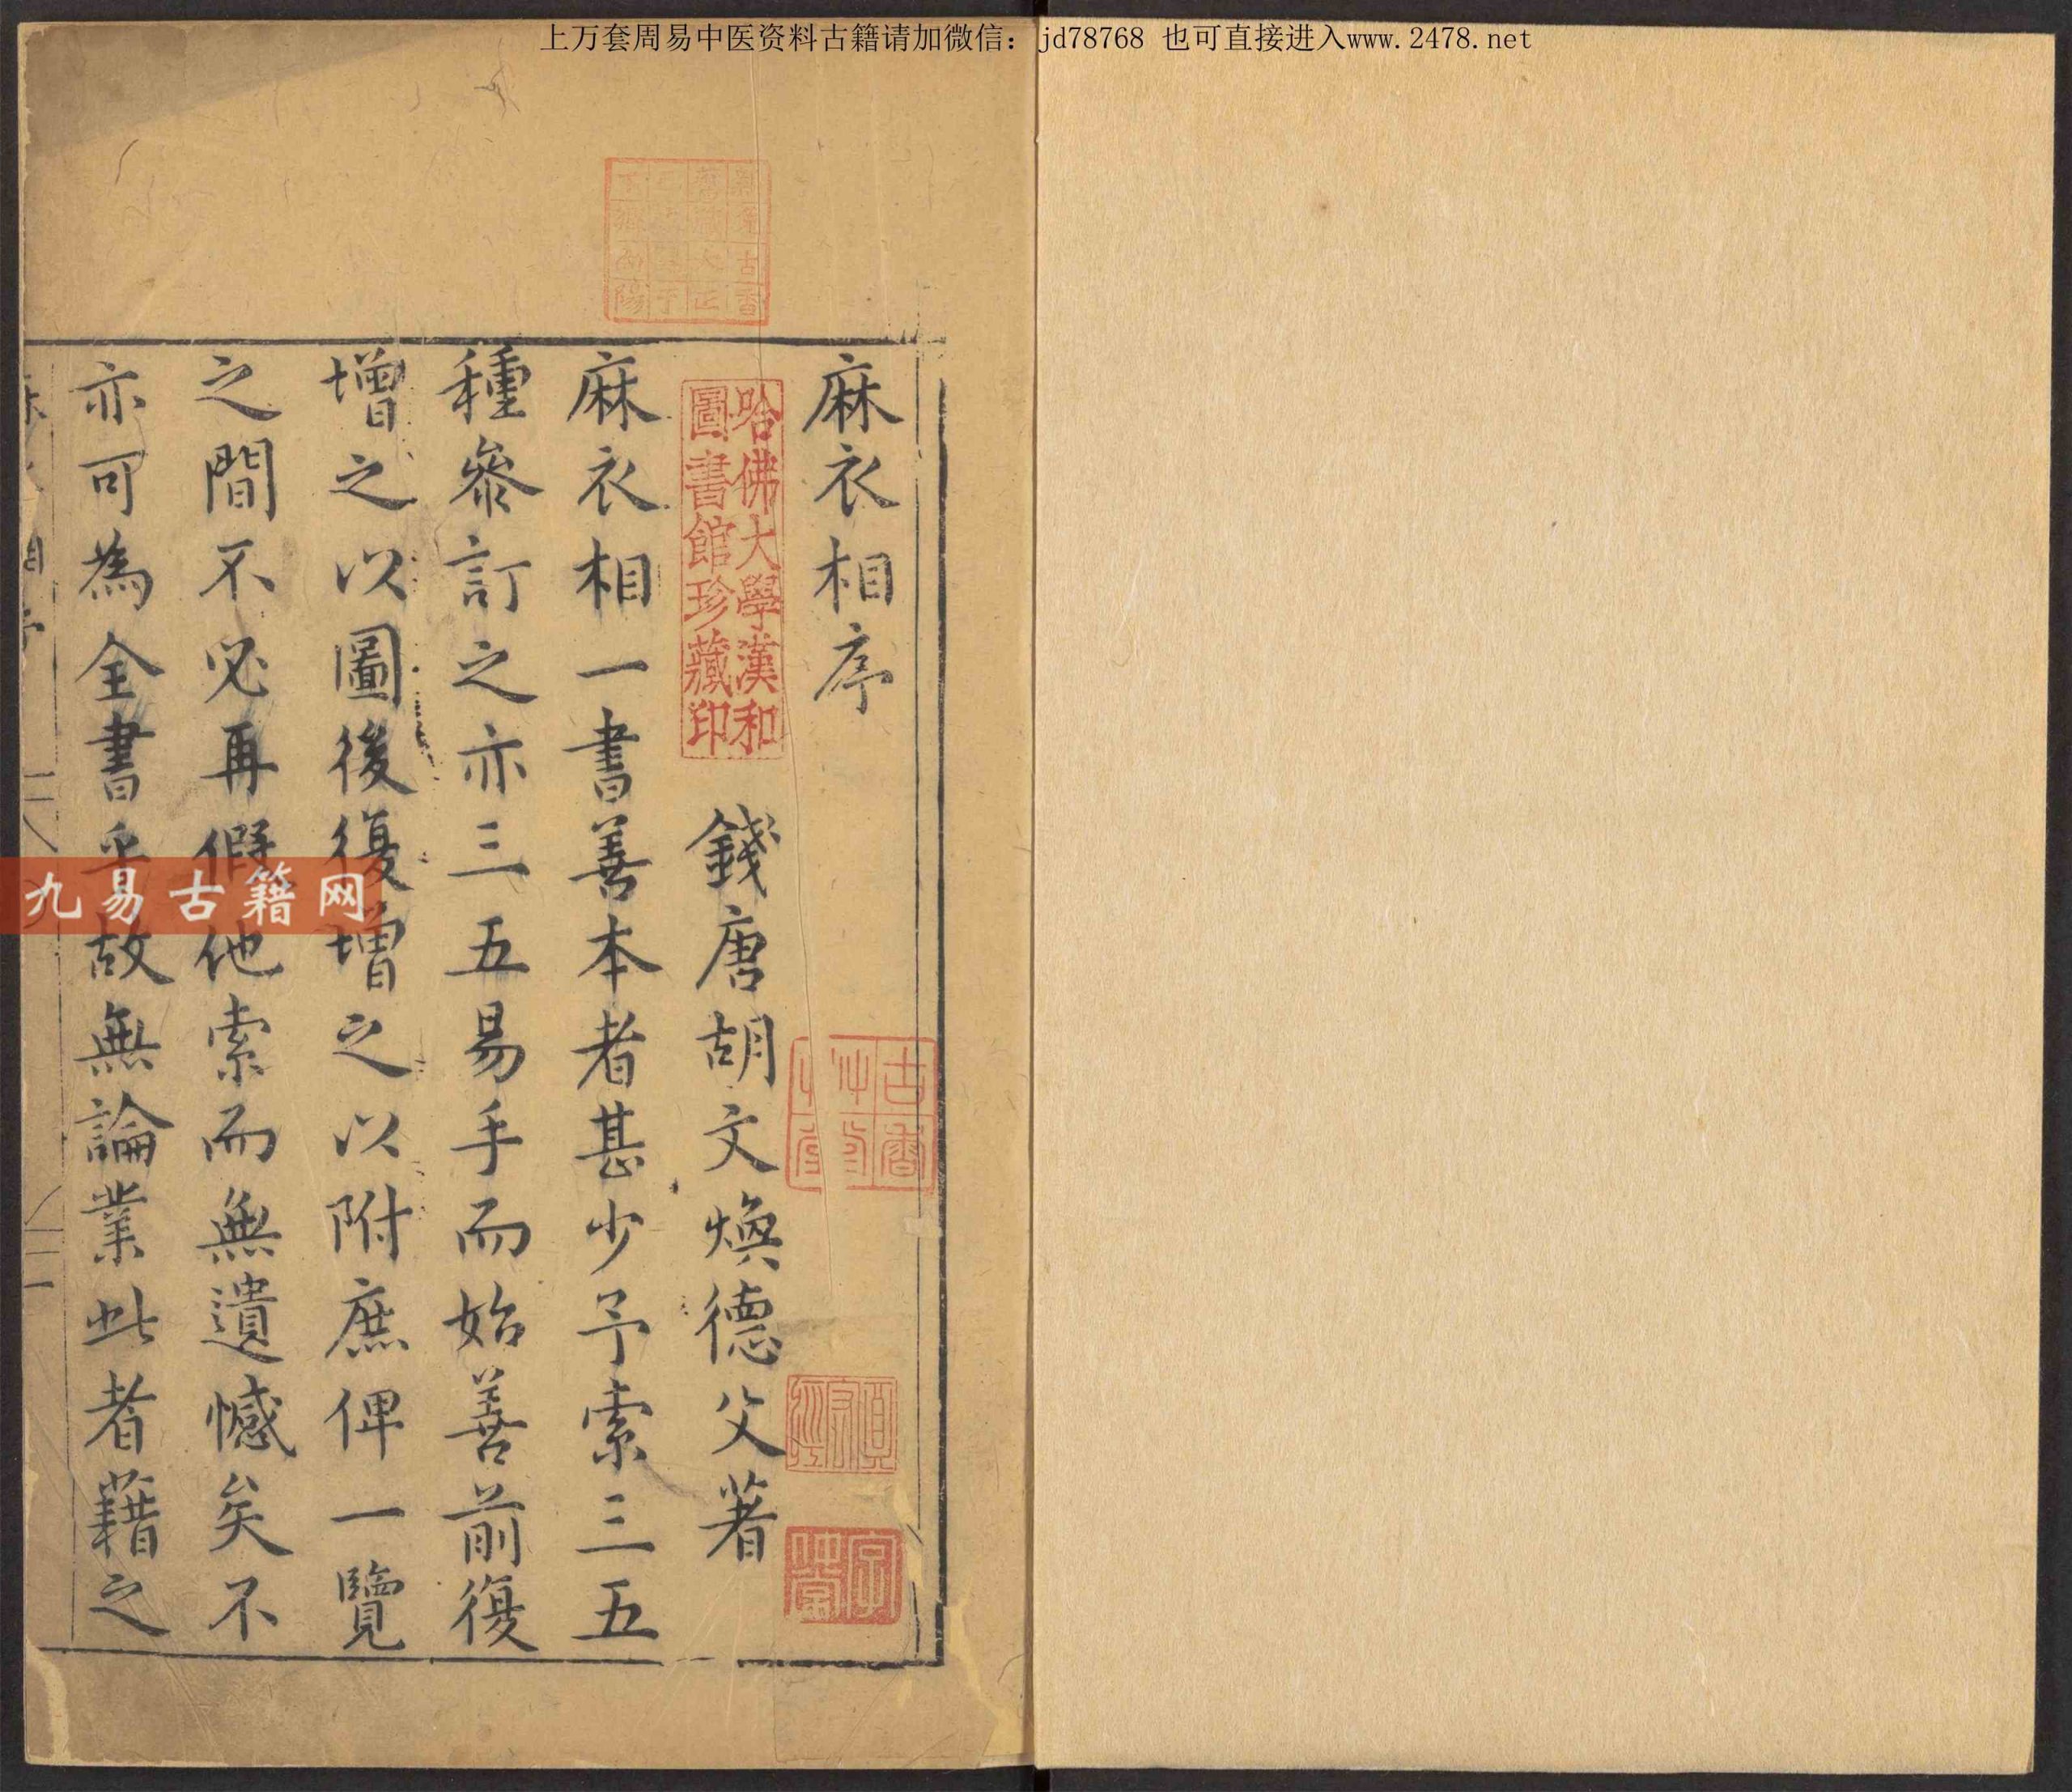 上万套周易中医资料古籍请加微信：jd78768 也可直接进入www.2478.net
麻衣相序
哈佛大學漢和
圖書館珍藏印
錢唐胡文煥德父著
麻衣相一書善本者甚少予索三五
種參訂之亦三五易手而始善前復
增之以圖後復增之以附庶俾一覽
之間不必再假他索而無遺憾矣不
亦可為全書乎故無論業此者藉之
古香
九易古籍网